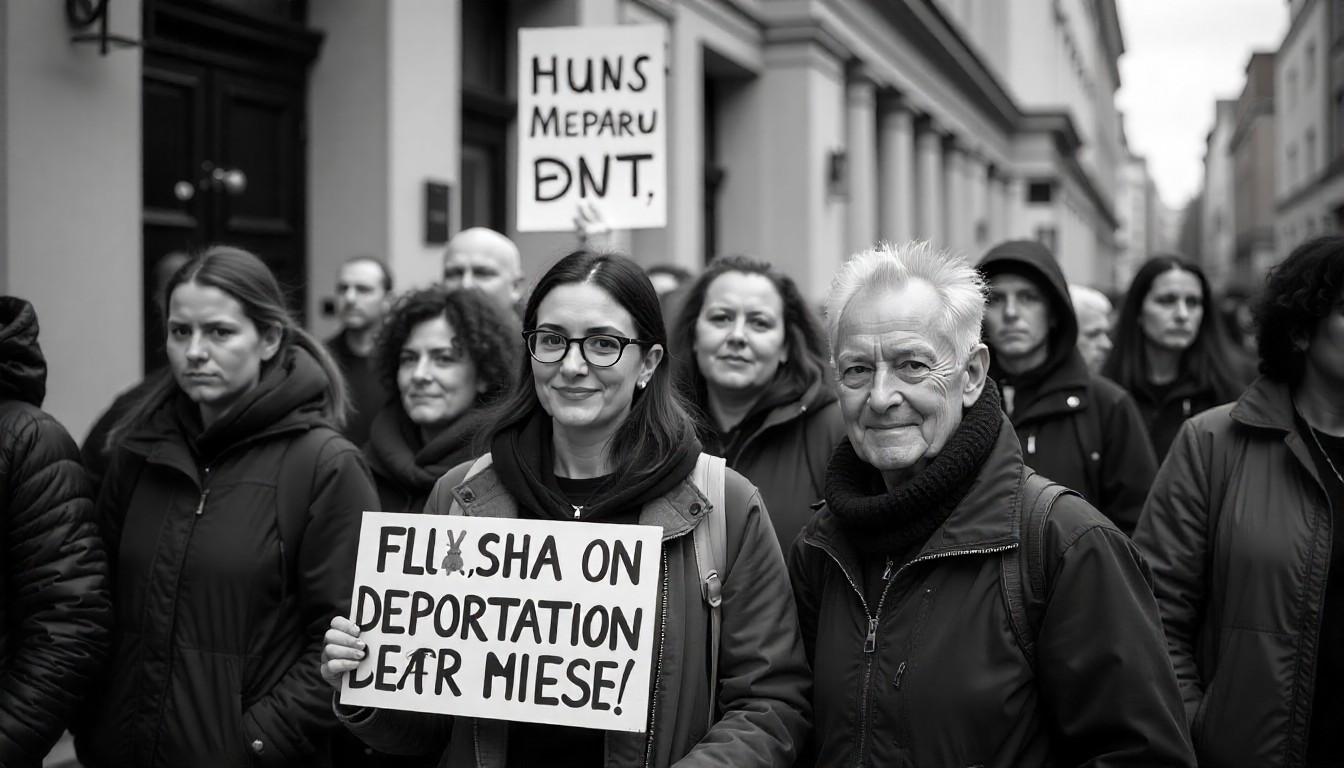 HUNS
MEPARU
ĐNT,
FLI ,SHA ON
DEPORTATION
LEAR MIESE!